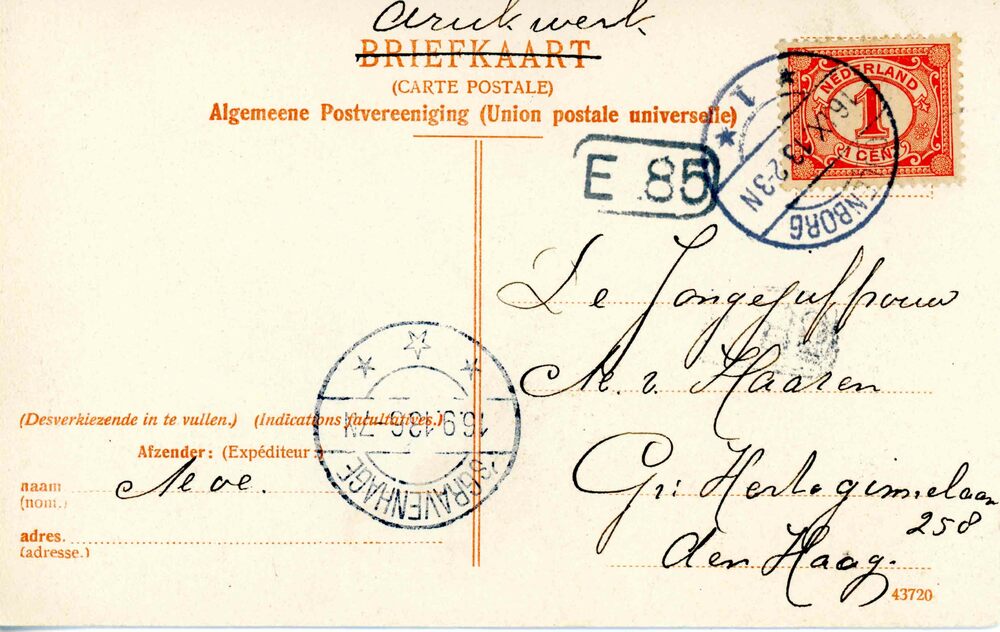 drukwerk
BRIEFKAART
(CARTE POSTALE)
Algemeene Postvereeniging (Union postale universelle)
NEDERLAND
1
1 CENT
1
16.IX.13 2-3N
ENBORG
E 85
De Jongejuffrouw
v. Haaren
Gr: Hertoginnelaan
258
den Haag.
16.9.13 6-7N
'S GRAVENHAGE
(Desverkiezende in te vullen.) (Indications facultatives.)
Afzender: (Expéditeur:)
naam
(nom.)
adres.
(adresse.)
43720